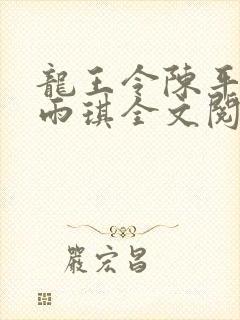 龍王令陳平
雨琪全文閱
嚴宏昌